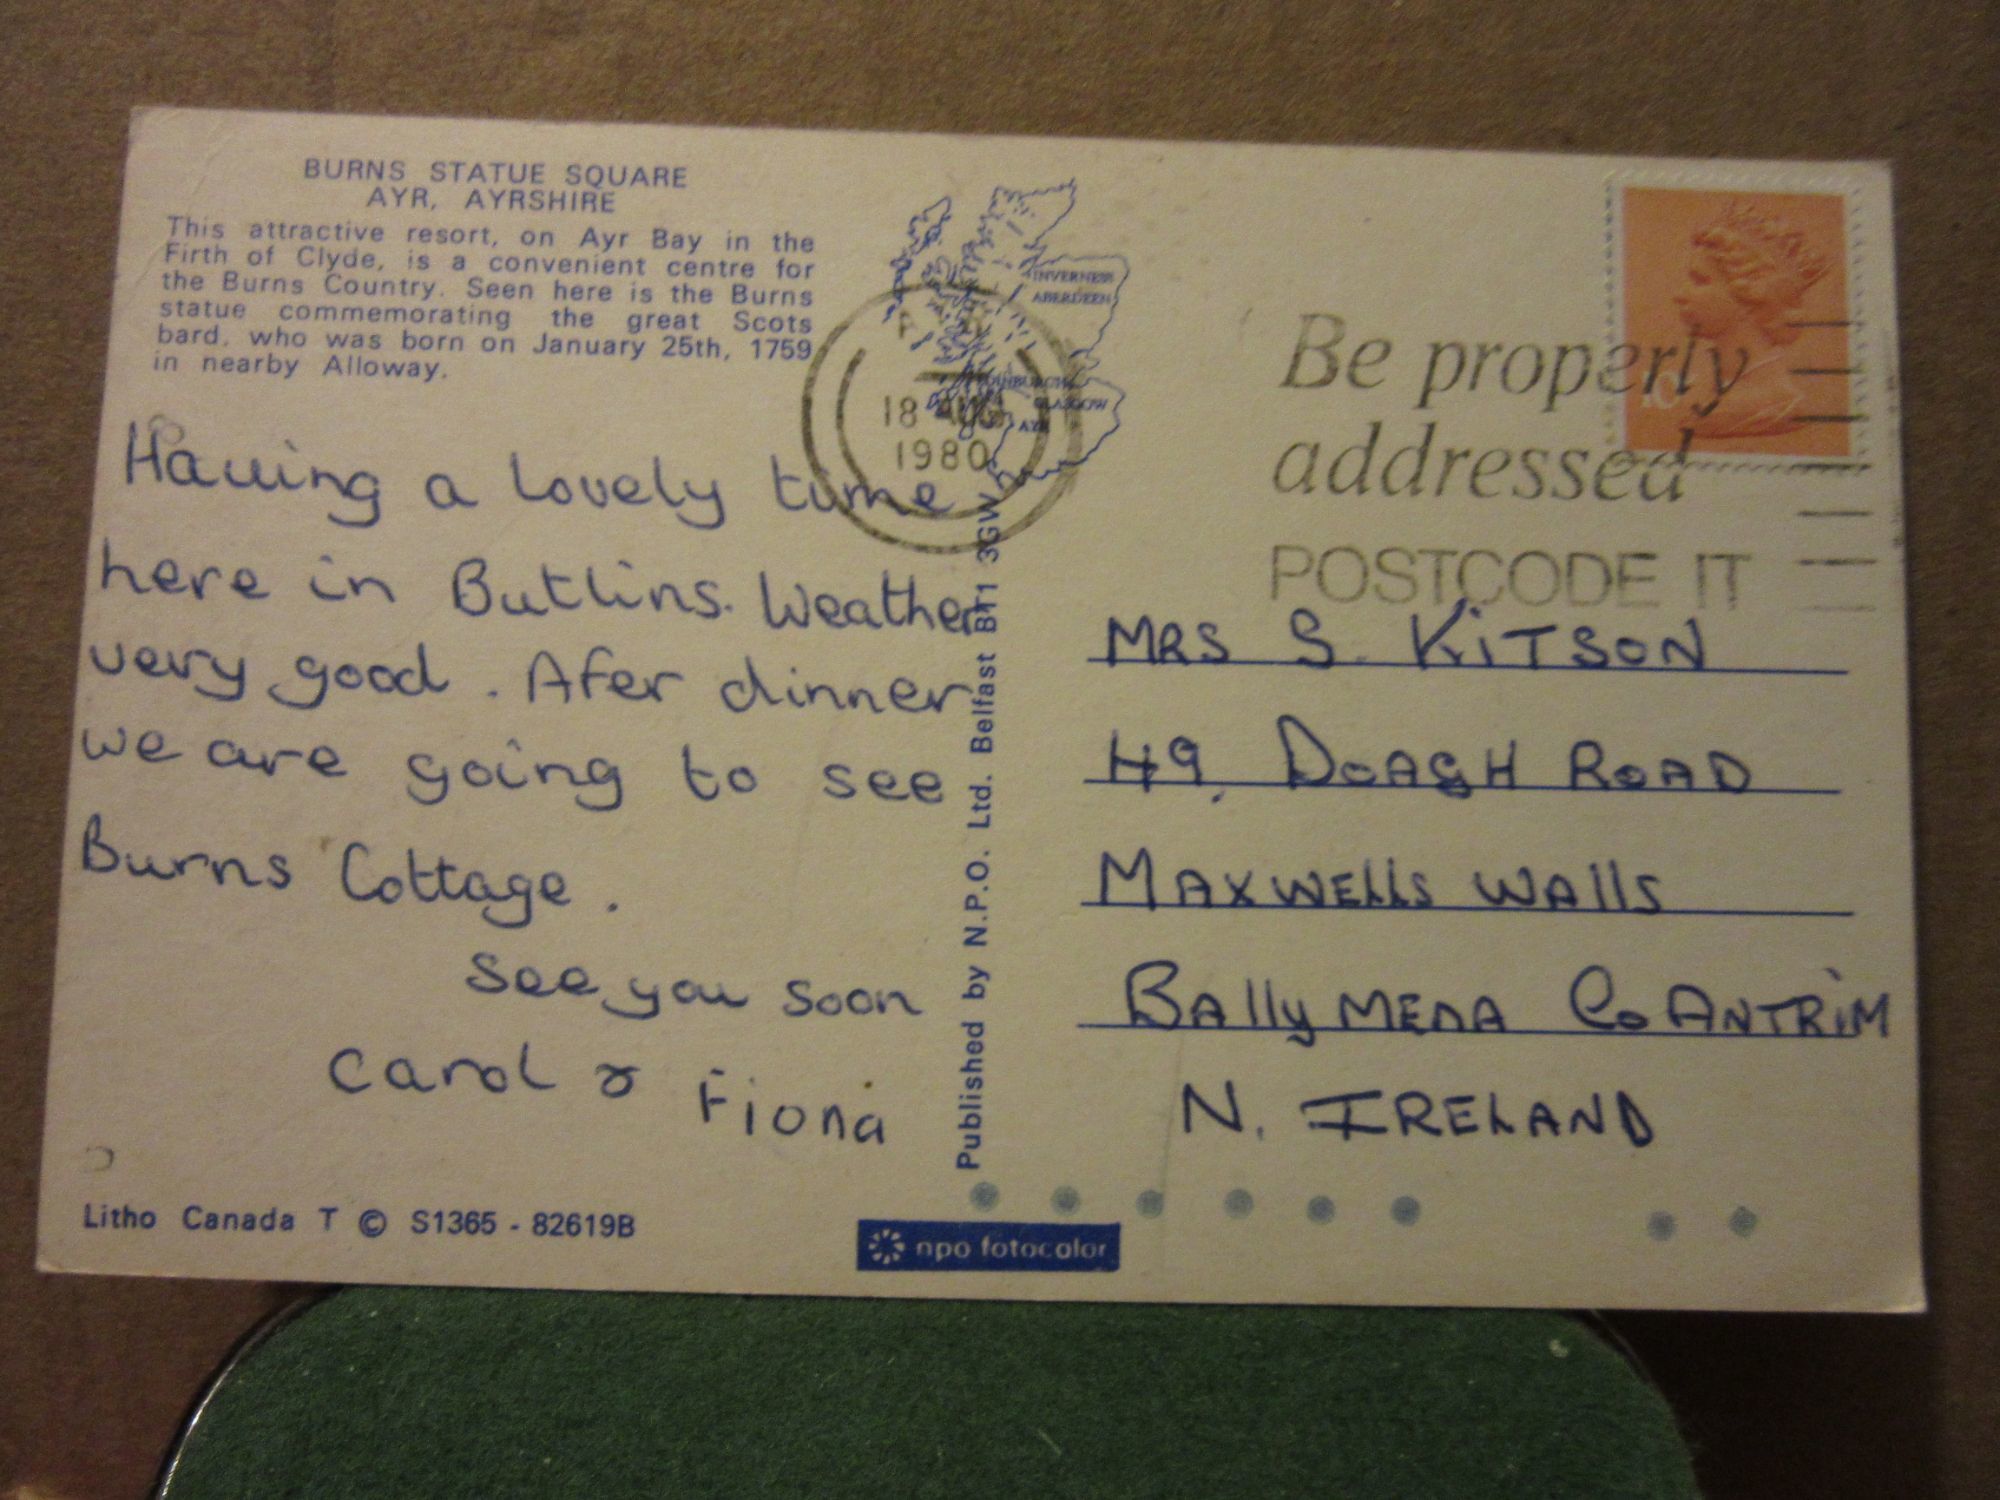 BURNS STATUE SQUARE
AYR, AYRSHIRE
This attractive resort, on Ayr Bay in the
Firth of Clyde, is a convenient centre for
the Burns Country. Seen here is the Burns
statue commemorating the great Scots
bard, who was born on January 25th, 1759
in nearby Alloway.
Having a lovely time
here in Butlins. Weather
very good. Afer dinner
we are going to see
Burns Cottage.
See you soon
Carol & Fiona
Litho Canada T © S1365 - 82619B
INVERNESS
ABERDEEN
EDINBURGH
GLASGOW
AYR
18 AUG
1980
Published by N.P.O. Ltd. Belfast BT1 3GW
npo fotocolor
Be properly
addressed
POSTCODE IT
10
MRS S. KiTSON
49, DOAGH ROAD
MAXWElls WAllS
BAlly MENA Co ANTRiM
N. IRELAND